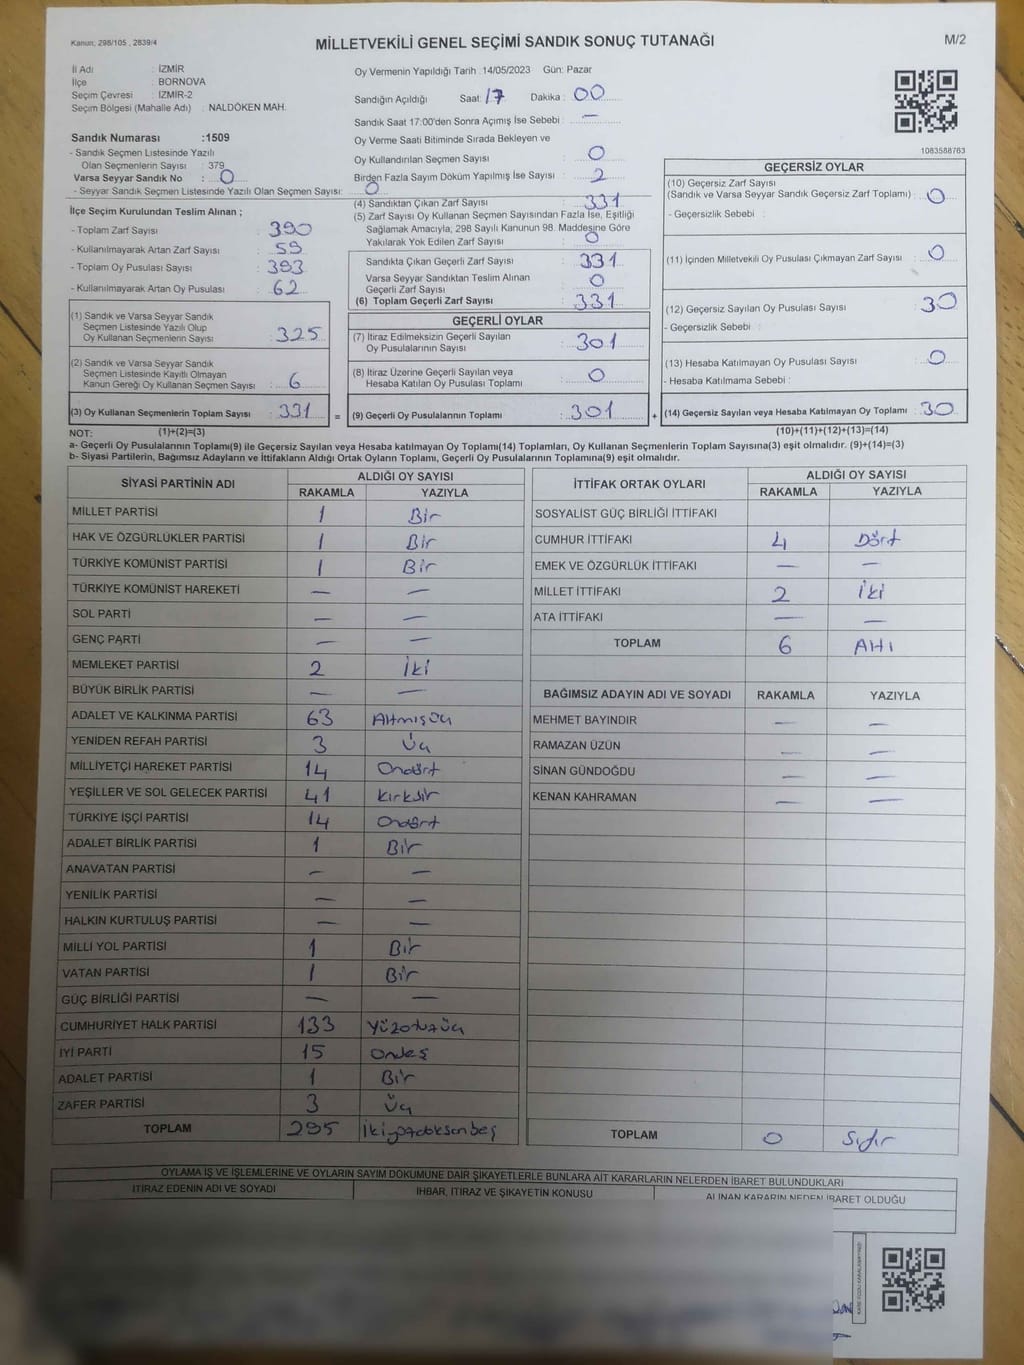 Kanun, 298/105 , 2839/4
MİLLETVEKİLİ GENEL SEÇİMİ SANDIK SONUÇ TUTANAĞI
M/2
İl Adı : İZMİR
İlçe : BORNOVA
Seçim Çevresi : İZMİR-2
Seçim Bölgesi (Mahalle Adı) : NALDÖKEN MAH.
Oy Vermenin Yapıldığı Tarih :14/05/2023 Gün: Pazar
Sandığın Açıldığı Saat: 17 Dakika : 00
Sandık Saat 17:00'den Sonra Açımış İse Sebebi : —
Oy Verme Saati Bitiminde Sırada Bekleyen ve
Oy Kullandırılan Seçmen Sayısı : 0
Birden Fazla Sayım Döküm Yapılmış İse Sayısı : 2
Sandık Numarası :1509
- Sandık Seçmen Listesinde Yazılı
Olan Seçmenlerin Sayısı : 379
Varsa Seyyar Sandık No : 0
- Seyyar Sandık Seçmen Listesinde Yazılı Olan Seçmen Sayısı: 0
1083588763
İlçe Seçim Kurulundan Teslim Alınan ;
- Toplam Zarf Sayısı : 390
- Kullanılmayarak Artan Zarf Sayısı : 59
- Toplam Oy Pusulası Sayısı : 393
- Kullanılmayarak Artan Oy Pusulası : 62
(1) Sandık ve Varsa Seyyar Sandık
Seçmen Listesinde Yazılı Olup
Oy Kullanan Seçmenlerin Sayısı : 325
(2) Sandık ve Varsa Seyyar Sandık
Seçmen Listesinde Kayıtlı Olmayan
Kanun Gereği Oy Kullanan Seçmen Sayısı : 6
(3) Oy Kullanan Seçmenlerin Toplam Sayısı : 331 =
(4) Sandıktan Çıkan Zarf Sayısı : 331
(5) Zarf Sayısı Oy Kullanan Seçmen Sayısından Fazla İse, Eşitliği
Sağlamak Amacıyla, 298 Sayılı Kanunun 98. Maddesine Göre
Yakılarak Yok Edilen Zarf Sayısı : 0
Sandıkta Çıkan Geçerli Zarf Sayısı : 331
Varsa Seyyar Sandıktan Teslim Alınan
Geçerli Zarf Sayısı : 0
(6) Toplam Geçerli Zarf Sayısı : 331
GEÇERLİ OYLAR
(7) İtiraz Edilmeksizin Geçerli Sayılan
Oy Pusulalarının Sayısı : 301
(8) İtiraz Üzerine Geçerli Sayılan veya
Hesaba Katılan Oy Pusulası Toplamı : 0
(9) Geçerli Oy Pusulalarının Toplamı : 301 +
GEÇERSİZ OYLAR
(10) Geçersiz Zarf Sayısı
(Sandık ve Varsa Seyyar Sandık Geçersiz Zarf Toplamı) : 0
- Geçersizlik Sebebi :
(11) İçinden Milletvekili Oy Pusulası Çıkmayan Zarf Sayısı : 0
(12) Geçersiz Sayılan Oy Pusulası Sayısı : 30
- Geçersizlik Sebebi :
(13) Hesaba Katılmayan Oy Pusulası Sayısı : 0
- Hesaba Katılmama Sebebi :
(14) Geçersiz Sayılan veya Hesaba Katılmayan Oy Toplamı : 30
NOT: (1)+(2)=(3) (10)+(11)+(12)+(13)=(14)
a- Geçerli Oy Pusulalarının Toplamı(9) ile Geçersiz Sayılan veya Hesaba katılmayan Oy Toplamı(14) Toplamları, Oy Kullanan Seçmenlerin Toplam Sayısına(3) eşit olmalıdır. (9)+(14)=(3)
b- Siyasi Partilerin, Bağımsız Adayların ve İttifakların Aldığı Ortak Oyların Toplamı, Geçerli Oy Pusulalarının Toplamına(9) eşit olmalıdır.
SİYASİ PARTİNİN ADI ALDIĞI OY SAYISI
RAKAMLA YAZIYLA
MİLLET PARTİSİ 1 Bir
HAK VE ÖZGÜRLÜKLER PARTİSİ 1 Bir
TÜRKİYE KOMÜNİST PARTİSİ 1 Bir
TÜRKİYE KOMÜNİST HAREKETİ — —
SOL PARTİ — —
GENÇ PARTİ — —
MEMLEKET PARTİSİ 2 İki
BÜYÜK BİRLİK PARTİSİ — —
ADALET VE KALKINMA PARTİSİ 63 Altmışüç
YENİDEN REFAH PARTİSİ 3 Üç
MİLLİYETÇİ HAREKET PARTİSİ 14 Ondört
YEŞİLLER VE SOL GELECEK PARTİSİ 41 Kırkbir
TÜRKİYE İŞÇİ PARTİSİ 14 Ondört
ADALET BİRLİK PARTİSİ 1 Bir
ANAVATAN PARTİSİ — —
YENİLİK PARTİSİ — —
HALKIN KURTULUŞ PARTİSİ — —
MİLLİ YOL PARTİSİ 1 Bir
VATAN PARTİSİ 1 Bir
GÜÇ BİRLİĞİ PARTİSİ — —
CUMHURİYET HALK PARTİSİ 133 Yüzotuzüç
İYİ PARTİ 15 Onbeş
ADALET PARTİSİ 1 Bir
ZAFER PARTİSİ 3 Üç
TOPLAM 295 İkiyüzdoksanbeş
İTTİFAK ORTAK OYLARI ALDIĞI OY SAYISI
RAKAMLA YAZIYLA
SOSYALİST GÜÇ BİRLİĞİ İTTİFAKI
CUMHUR İTTİFAKI 4 Dört
EMEK VE ÖZGÜRLÜK İTTİFAKI — —
MİLLET İTTİFAKI 2 İki
ATA İTTİFAKI — —
TOPLAM 6 Altı
BAĞIMSIZ ADAYIN ADI VE SOYADI RAKAMLA YAZIYLA
MEHMET BAYINDIR — —
RAMAZAN ÜZÜN — —
SİNAN GÜNDOĞDU — —
KENAN KAHRAMAN — —
TOPLAM 0 Sıfır
OYLAMA İŞ VE İŞLEMLERİNE VE OYLARIN SAYIM DÖKÜMÜNE DAİR ŞİKAYETLERLE BUNLARA AİT KARARLARIN NELERDEN İBARET BULUNDUKLARI
İTİRAZ EDENİN ADI VE SOYADI İHBAR, İTİRAZ VE ŞİKAYETİN KONUSU ALINAN KARARIN NEDEN İBARET OLDUĞU